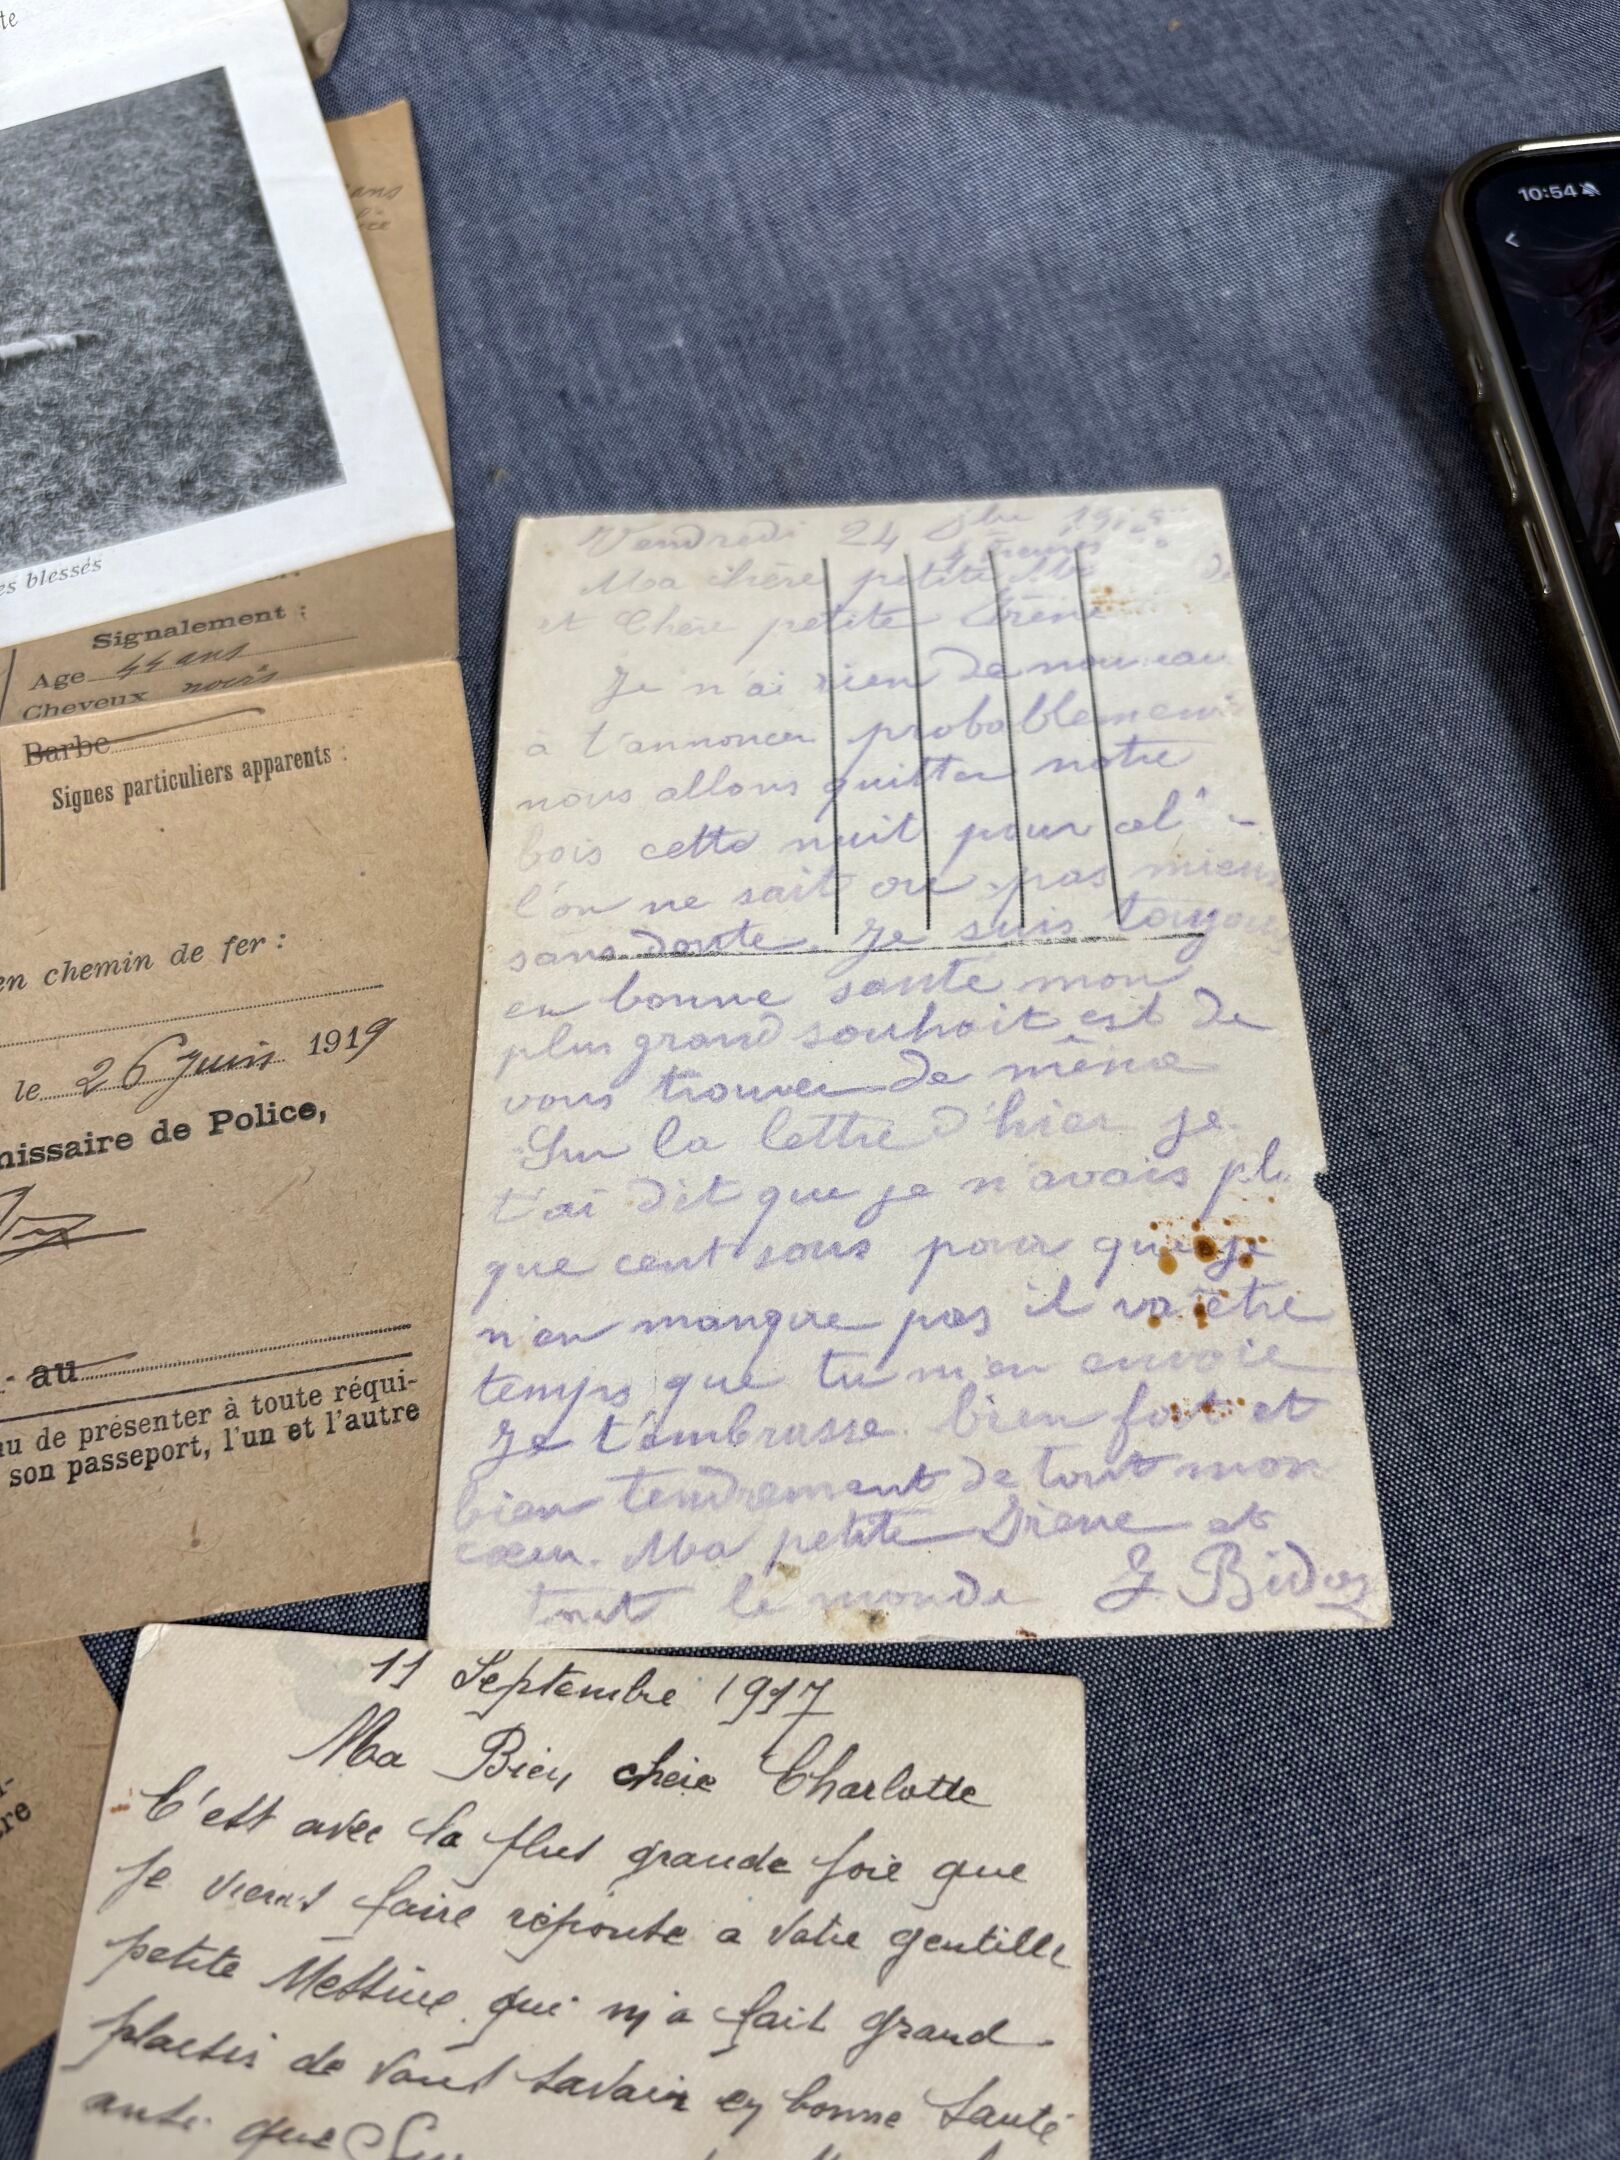 te
es blessés
ans
Signalement :
Age 44 ans
Cheveux noirs
Barbe
Signes particuliers apparents :
en chemin de fer :
le 26 Juin 1919
missaire de Police,
au
u de présenter à toute réqui-
son passeport, l'un et l'autre
re
10:54
Vendredi 24
Ma chère petite
et Chère petite Irène
Je n'ai rien de nouveau
à t'annoncer probablement
nous allons quitter notre
bois cette nuit pour
l'on ne sait où pas mieux
sans doute. Je suis toujours
en bonne santé mon
plus grand souhait est de
vous trouver de même
Sur la lettre d'hier je
t'ai dit que je n'avais plu
que cent sous pour que je
n'en manque pas il va être
temps que tu m'en envoie
Je t'embrasse bien fort et
bien tendrement de tout mon
cœur. Ma petite Irène et
tout le monde
11 Septembre 1917
Ma Bien chère Charlotte
C'est avec la plus grande joie que
Je viens faire réponse a votre gentille
petite Messive qui m'a fait grand
plaisir de vous savoir en bonne Santé
que